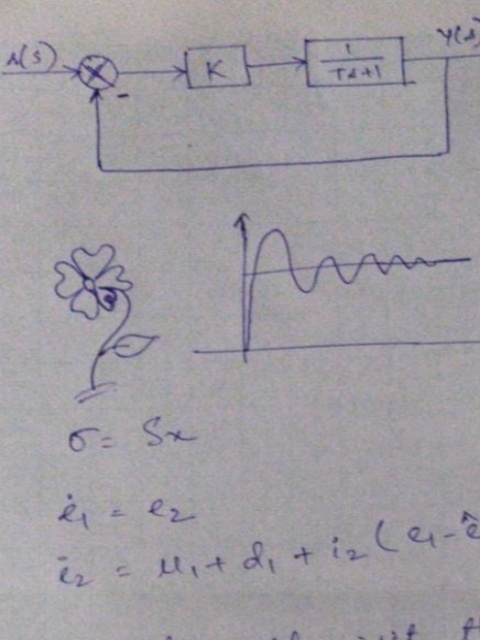 r(s)
-
K
1
Ts+1
y(s)
σ = Sx
ė₁ = e₂
ė₂ = u₁ + d₁ + i₂ (e₁ - ê